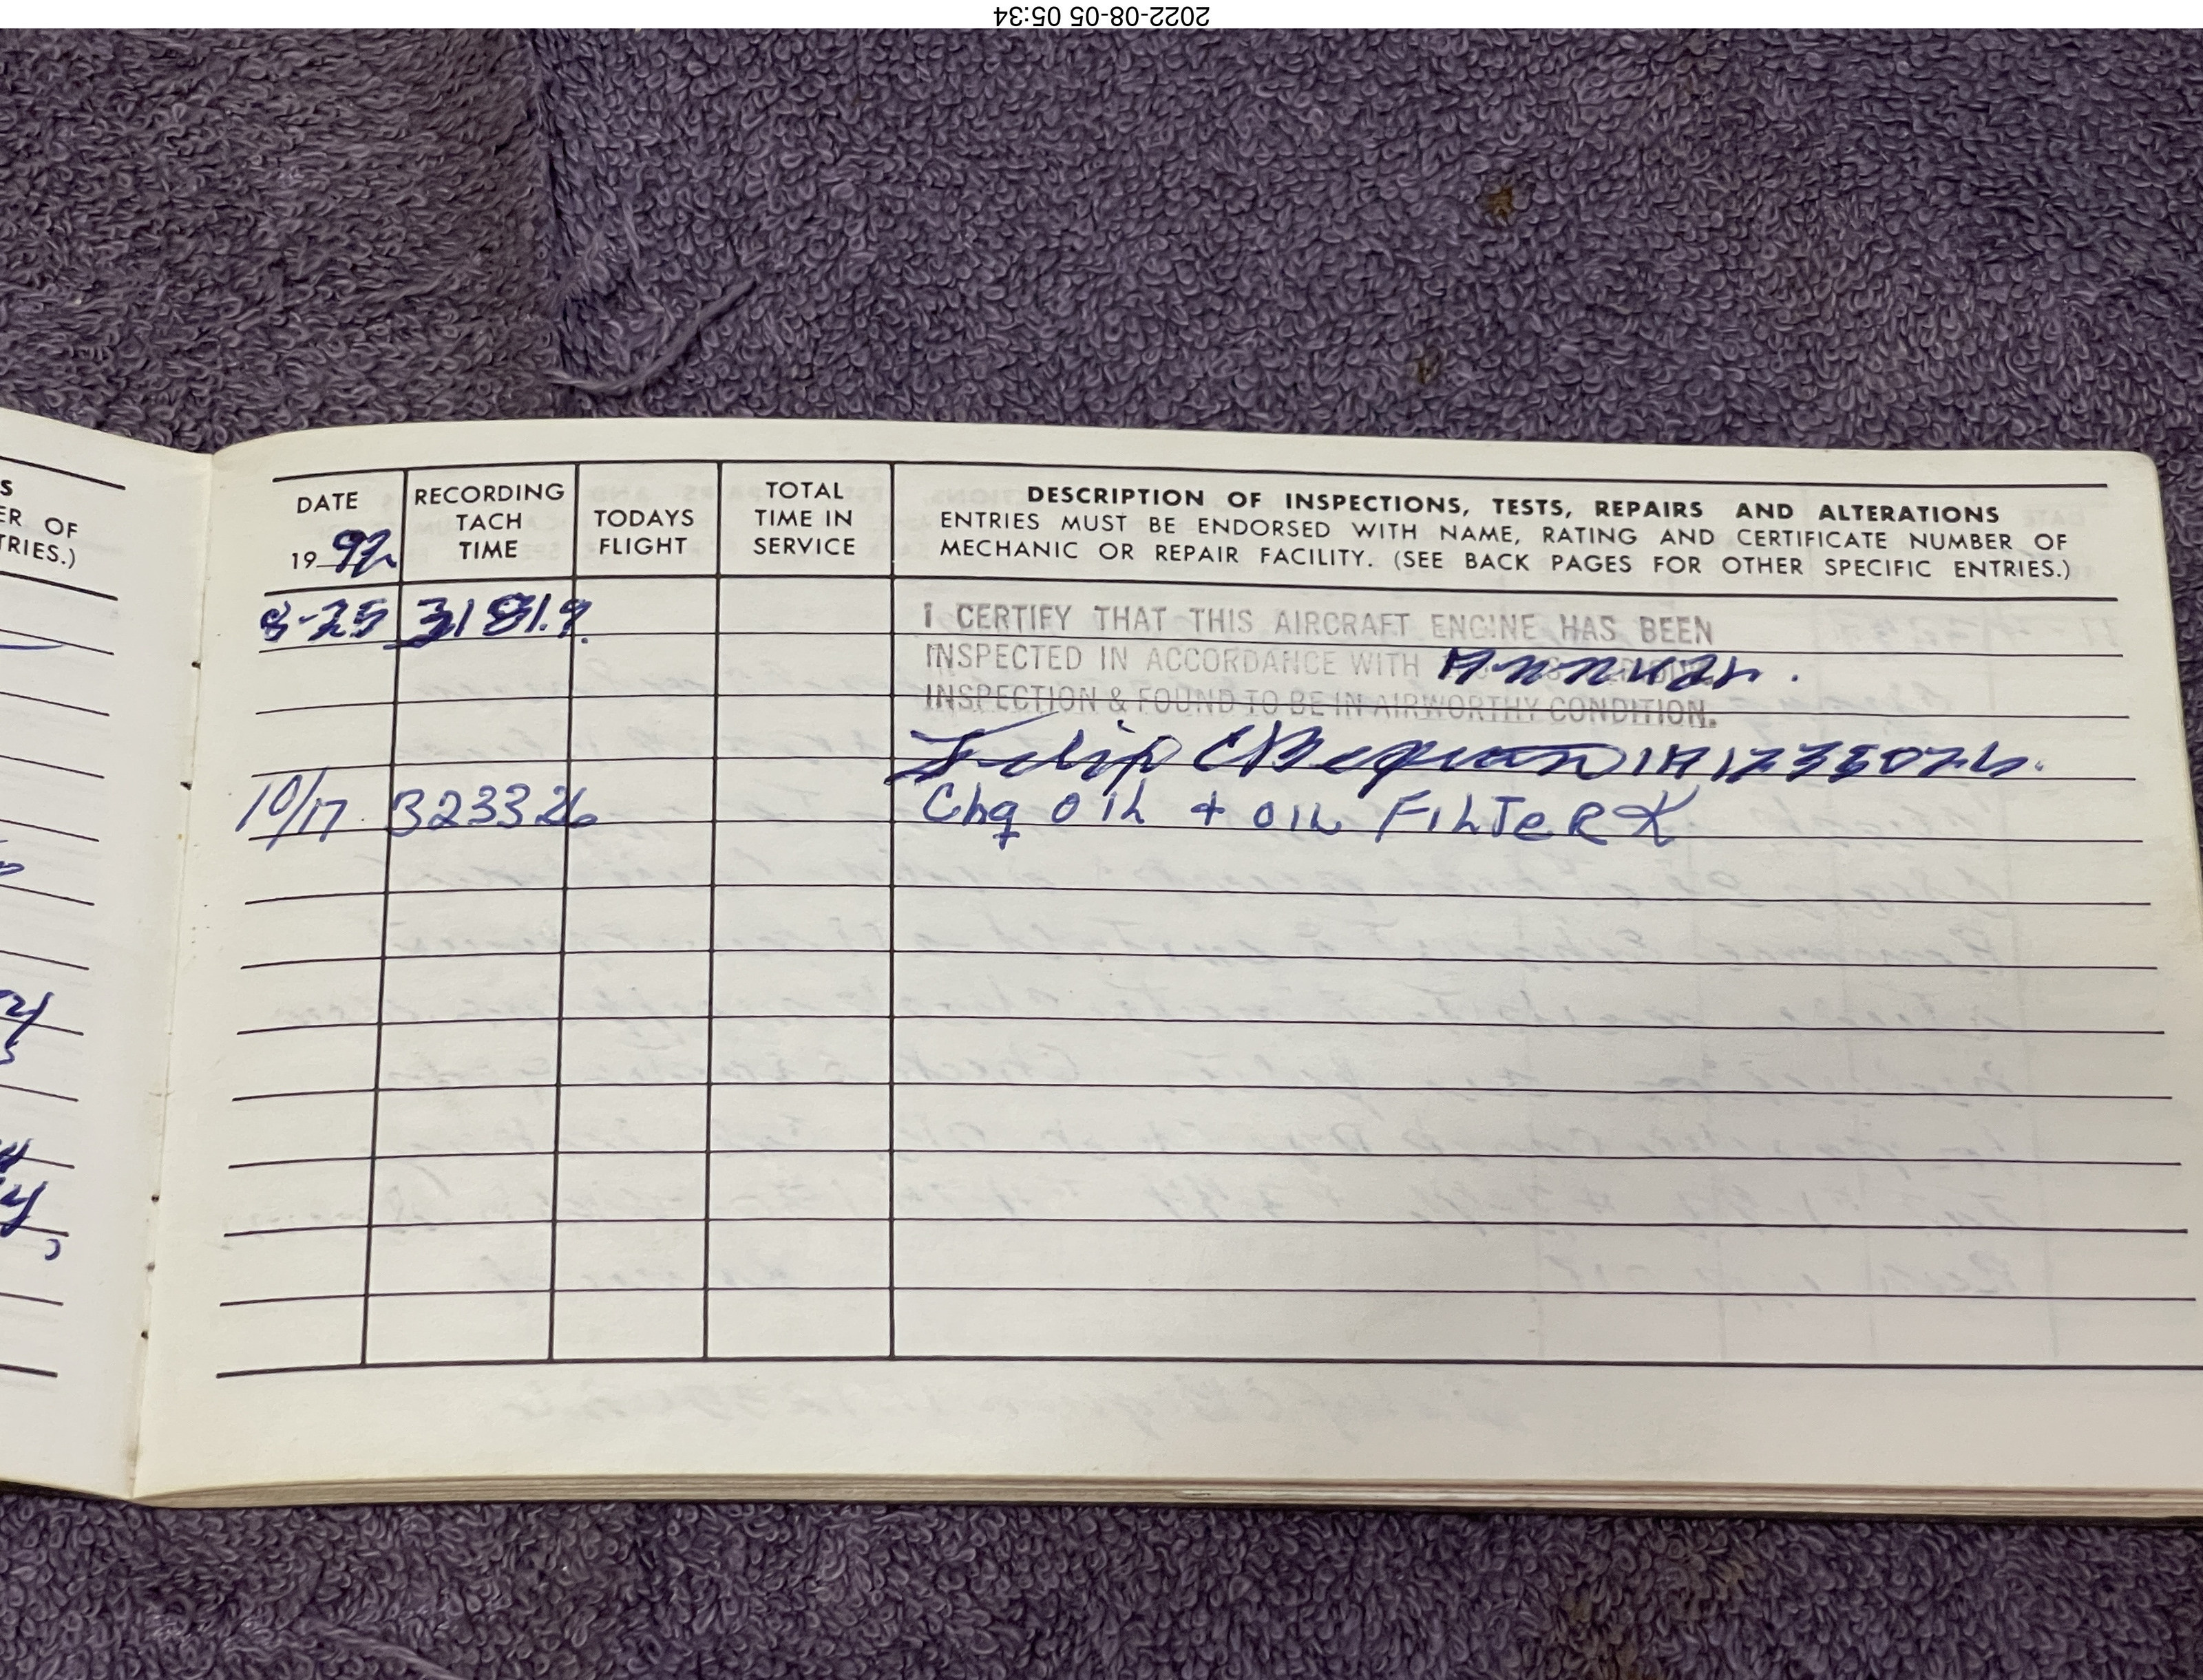 2022-08-05 05:34
S
ER OF
TRIES.)
DATE
19 92
RECORDING
TACH
TIME
TODAYS
FLIGHT
TOTAL
TIME IN
SERVICE
DESCRIPTION OF INSPECTIONS, TESTS, REPAIRS AND ALTERATIONS
ENTRIES MUST BE ENDORSED WITH NAME, RATING AND CERTIFICATE NUMBER OF
MECHANIC OR REPAIR FACILITY. (SEE BACK PAGES FOR OTHER SPECIFIC ENTRIES.)
8-25 3181.9 I CERTIFY THAT THIS AIRCRAFT ENGINE HAS BEEN
INSPECTED IN ACCORDANCE WITH Annual.
INSPECTION & FOUND TO BE IN AIRWORTHY CONDITION.
IA
10/17 323326 Chg OIL + OIL FILTER